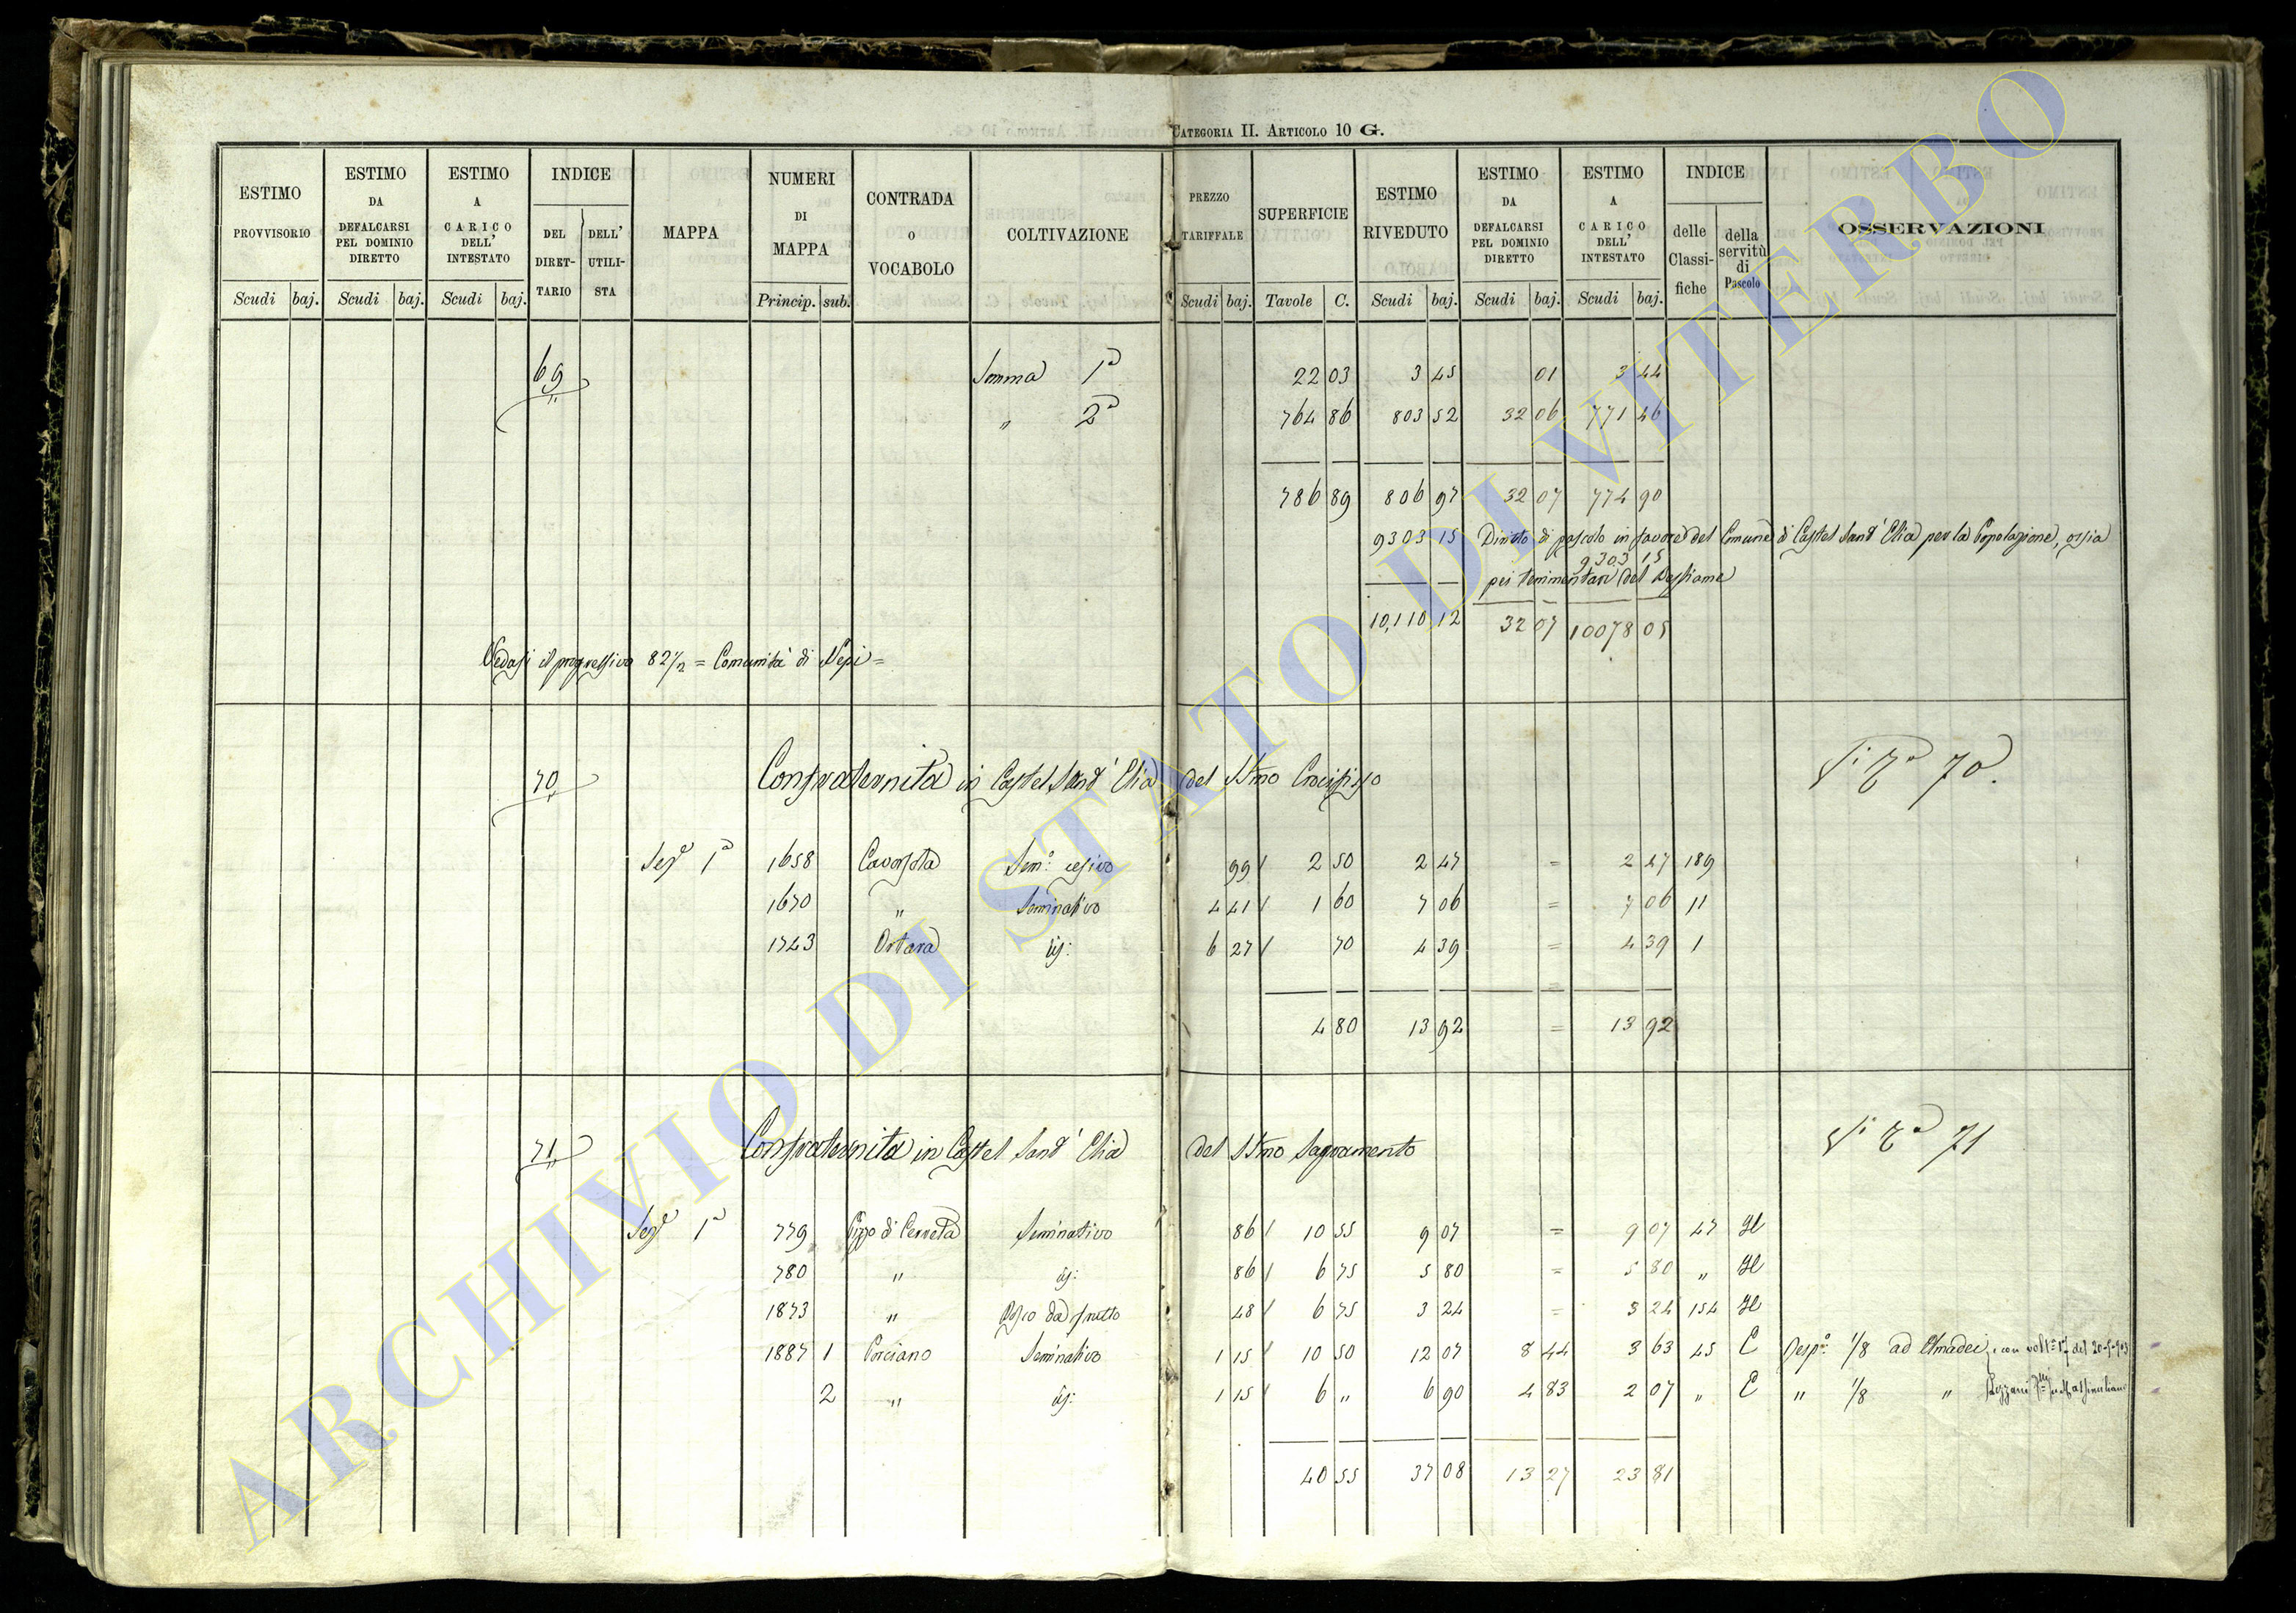 CATEGORIA II. ARTICOLO 10 G.
ESTIMO PROVVISORIO | ESTIMO DA DEFALCARSI PEL DOMINIO DIRETTO | ESTIMO A CARICO DELL' INTESTATO | INDICE | MAPPA | NUMERI DI MAPPA | CONTRADA O VOCABOLO | COLTIVAZIONE | PREZZO TARIFFALE | SUPERFICIE | ESTIMO RIVEDUTO | ESTIMO DA DEFALCARSI PEL DOMINIO DIRETTO | ESTIMO A CARICO DELL' INTESTATO | INDICE | OSSERVAZIONI
DEL DIRETTARIO | DELL' UTILISTA | delle Classifiche | della servitù di Pascolo
Scudi baj. | Scudi baj. | Scudi baj. | Princip. sub. | Scudi baj. | Tavole C. | Scudi baj. | Scudi baj. | Scudi baj.
69 Somma 1a 22 03 3 45 01 3 44
" 2a 764 86 803 52 32 06 771 46
786 89 806 97 32 07 774 90
9303 15 Diritto di pascolo in favore del Comune di Castel Sant' Elia per la Popolazione, ossia
9303 15
pei temimentari del Bestiame
10,110 12 32 07 10078 05
Vedasi il progressivo 82 1/2 = Comunità di Nepi =
70 Confraternita in Castel Sant' Elia del SSmo Crocifisso 70.
Sez.e 1a 1658 Sem.o cesivo 99 2 50 2 47 = 2 47 189
1670 " Seminativo 4 41 1 60 7 06 = 7 06 11
1743 Ortara id: 6 27 70 4 39 = 4 39 1
=
4 80 13 92 = 13 92
71 Confraternita in Castel Sant' Elia del SSmo Sagramento 71
Sez.e 1a 779 Pizzo di Cerreta Seminativo 86 10 55 9 07 = 9 07 47
780 " id: 86 6 75 5 80 = 5 80 "
1873 " Bosco da frutto 48 6 75 3 24 = 3 24 154
1887 1 Porciano Seminativo 1 15 10 50 12 07 8 44 3 63 45 C Resp: 1/8 ad Amadei
2 " id: 1 15 6 " 6 90 4 83 2 07 " C " 1/8 "
40 55 37 08 13 27 23 81
ARCHIVIO DI STATO DI VITERBO